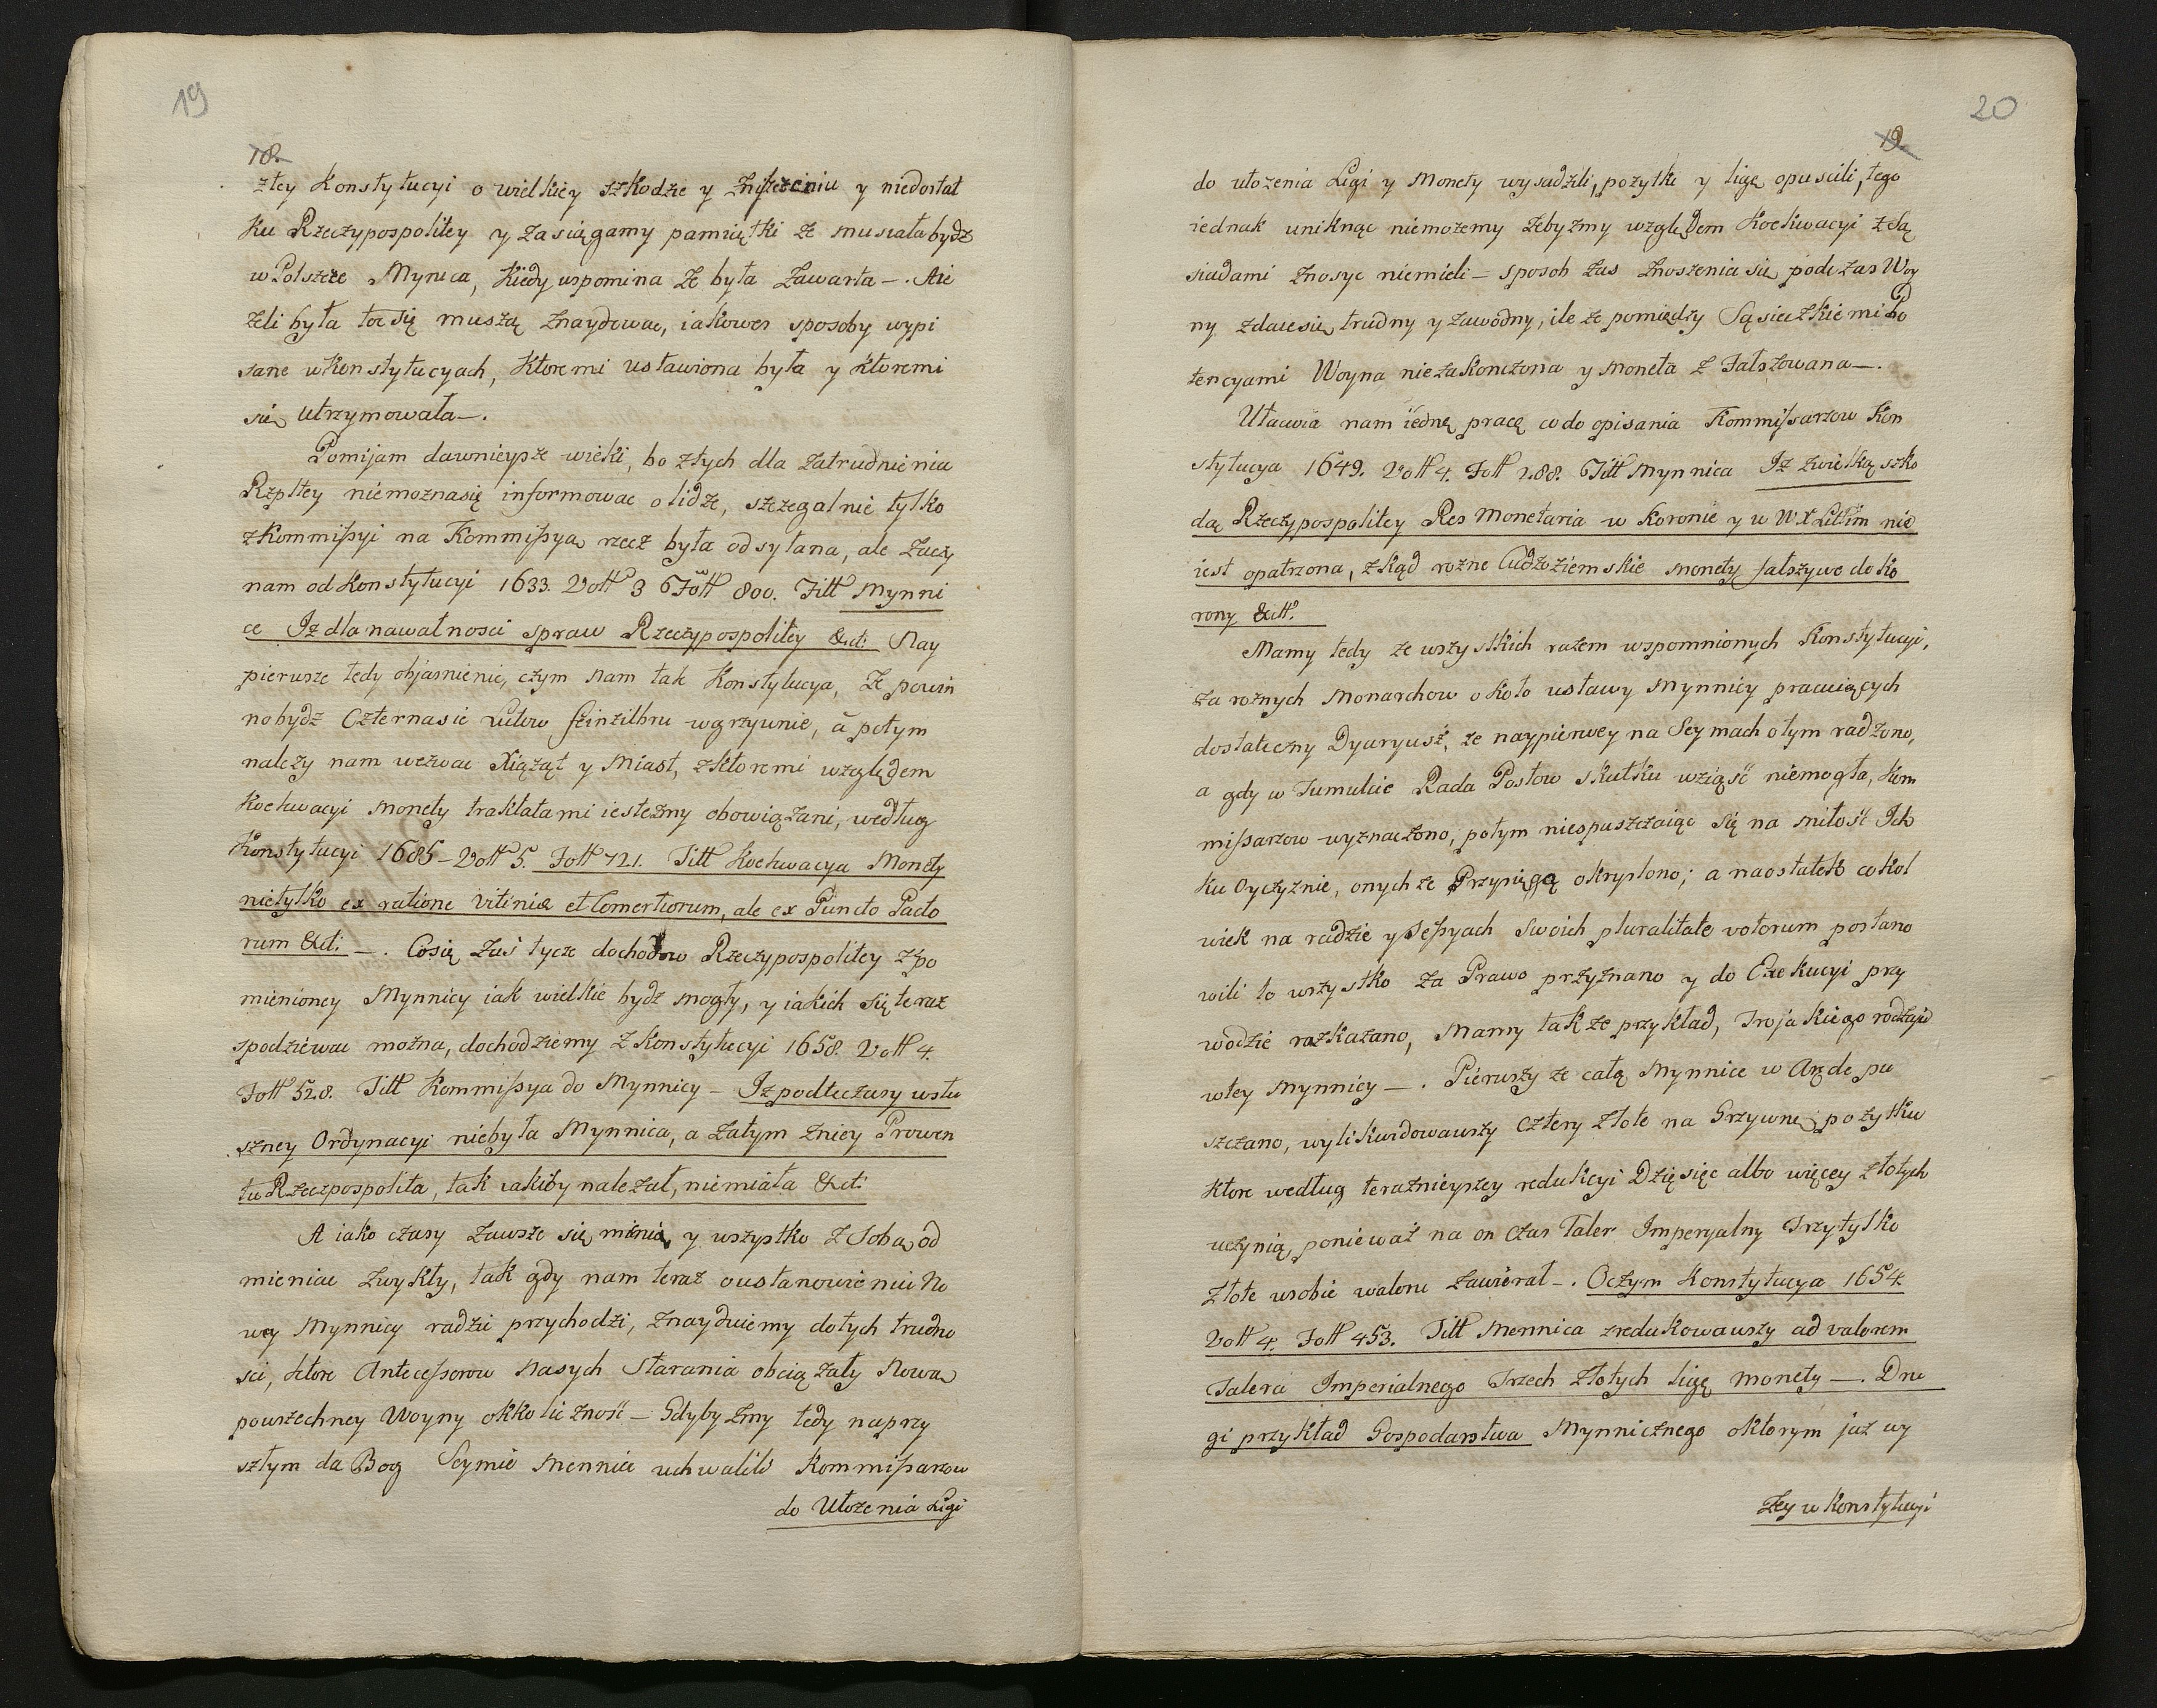 19
18.
ztey Konstytucyi o wielkiey szkodzie y Zniszczeniu y niedostat
ku Rzeczypospolitey y zasiągamy pamiętki że musiała bydz
w Polszcze Mynica, kiedy wspomina że była zawarta —. A ie
żeli była toć się muszą znaydować, iakowes sposoby wypi
sane w Konstytucyach, ktoremi ustawiona była y ktoremi
się utrzymowała —.
Pomijam dawnieysze wieki, bo z tych dla zatrudnienia
Rzpltey niemoznasię informowac o lidze, szczegalnie tylko
z Kommissyi na Kommissyą rzecz była odsyłana, ale zaczy
nam od Konstytucyi 1633. Voll 3 Foll 800. Titt Mynni
ce Iz dla nawałnosci spraw Rzeczypospolitey &ct: Nay
pierwsze tedy objasnienie, czym nam tak Konstytucya, że powin
no bydz Czternascie Lutow feinzilbru w grzywnie, à potym
nalezy nam wezwac Xiążąt y Miast, z ktoremi względem
Koekwacyi monety traktatami iestezmy obowiązani, według
Konstytucyi 1685 – Voll 5. Foll 721. Titt Koekwacya Monety
nietylko ex ratione vitiniæ et Comertiorum, ale ex Puncto Pacto
rum &ct: —. Cosię zaś tycze dochodow Rzeczypospolitey z po
mienioney Mynnicy iak wielkie bydz mogły, y iakich się teraz
spodziewac można, dochodziemy z Konstytucyi 1658. Voll 4.
Foll 528. Titt Kommissya do Mynnicy – Iz podte czasy w słu
szney Ordynacyi niebyła Mynnica, a zatym z niey Prowen
tu Rzeczpospolita, tak iakiby nalezał, niemiała &ct:
A iako czasy zawsze się mienią y wszystko z Sobą od
mieniac zwykły, tak gdy nam teraz o ustanowieniu No
wey Mynnicy radzic przychodzi, znayduiemy do tych trudno
sci, ktore Antecessorow Nasych Starania obciązały Nową
powszechney Woyny okkolicznosć – Gdyby zmy tedy na przy
szłym da Bog Seymie Mennice uchwalili Kommissarzow
do Ułozenia Ligi
20
19.
do ułozenia Ligi y Monety wysadzili, pozytki y ligę opuscili, tego
iednak uniknąc niemozemy żebyzmy względem Koekwacyi z Są
siadami znosyc niemieli – sposob zas znoszenia się podczas Woy
ny zdaie się trudny y zawodny, ile że pomiędzy Sąsiedzkiemi Po
tencyami Woyna niezakonczona y moneta z Fałszowana —.
Ułacwia nam iednę pracę co do opisania Kommissarzow Kon
stytucya 1649. Voll 4. Foll 288. Titt Mynnica Iz z wielką szko
dą Rzeczypospolitey Res Monetaria w Koronie y w W X Littim nie
iest opatrzona, z kąd rozne Cudzoziemskie monety fałszywe do Ko
rony &ctt.
Mamy tedy ze wszystkich razem wspomnionych Konstytucyi,
za roznych Monarchow około ustawy Mynnicy pracuiących
dostateczny Dyaryusz, ze naypierwey na Seymach o tym radzono,
a gdy w Tumulcie Rada Posłow skutku wziąść niemogła, kom
missarzow wyznaczono, potym niespuszczaiąc się na miłość Ich
ku Oyczyznie, onych ze Przysięgą okryslono; a naostatek cokol
wiek na radzie y Sessyach Swoich pluralitate votorum postano
wili to wszystko za Prawo przyznano y do Exekucyi przy
wodzic rozkazano, Mamy takze przykład, Trojakiego rodzaju
w tey Mynnicy —. Pierwszy ze całą Mynnice w Arędę pu
szczano, wylikwidowawszy Cztery Złote na Grzywnę pozytku
ktore według teraznieyszey redukcyi Dziesięc albo więcey złotych
uczynią, poniewaz na on czas Taler Imperyalny Trzy tylko
złote w sobie waloru zawierał —. O czym Konstytucya 1654.
Voll 4. Foll 453. Titt Mennica zredukowawszy ad valorem
Talera Imperialnego Trzech Złotych ligę monety —. Dru
gi przykład Gospodarstwa Mynnicznego o ktorym już wy
zey w Konstytucyi